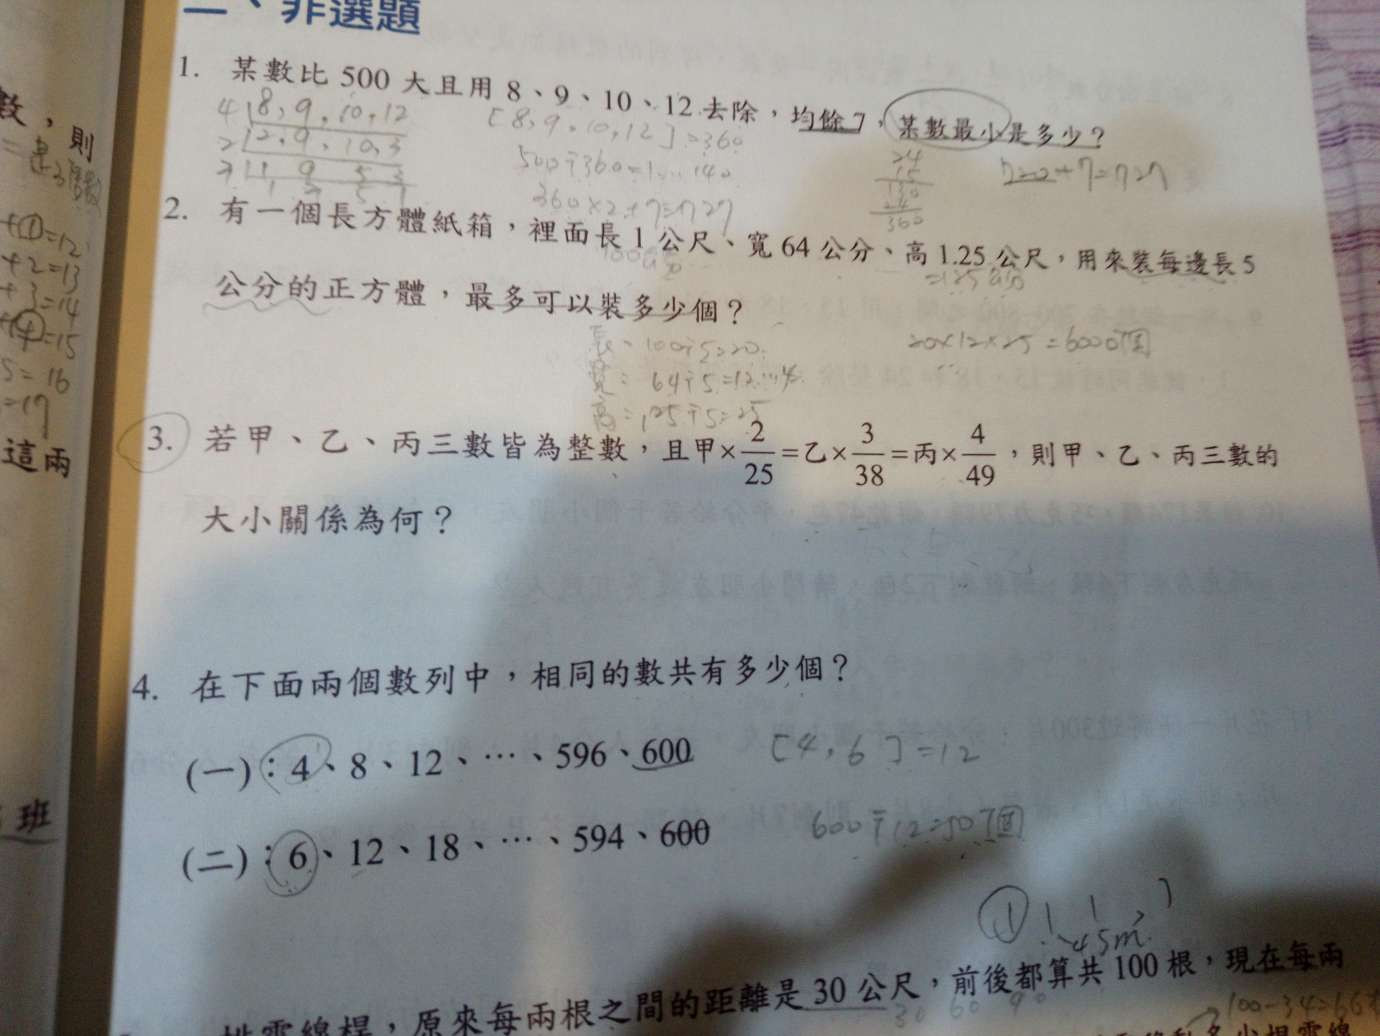 二、非選題
1. 某數比 500 大且用 8、9、10、12 去除,均餘 7,某數最小是多少?
4 8, 9, 10, 12
[8, 9, 10, 12] = 360
2 2, 9, 10, 3
500÷360=1...140
720+7=727
360×2+7=727
360
2. 有一個長方體紙箱,裡面長 1 公尺、寬 64 公分、高 1.25 公尺,用來裝每邊長 5
公分的正方體,最多可以裝多少個?
長:100÷5=20
20×12×25=6000個
寬:64÷5=12...4
高:125÷5=25
3. 若甲、乙、丙三數皆為整數,且甲×2/25=乙×3/38=丙×4/49,則甲、乙、丙三數的
大小關係為何?
4. 在下面兩個數列中,相同的數共有多少個?
(一):4、8、12、…、596、600
[4, 6]=12
(二):6、12、18、…、594、600
600÷12=50個
45m
電線桿,原來每兩根之間的距離是 30 公尺,前後都算共 100 根,現在每兩
30 60 90
數,則
+①=12
+2=13
+3=14
+④=15
5=16
=17
這兩
班